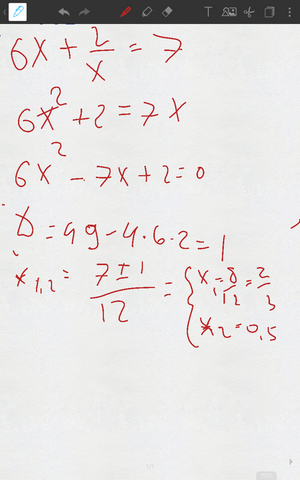 6x + 2/x = 7
6x² + 2 = 7x
6x² - 7x + 2 = 0
D = 49 - 4·6·2 = 1
x₁,₂ = (7 ± 1)/12 = { x₁ = 8/12 = 2/3
x₂ = 0,5
1/1